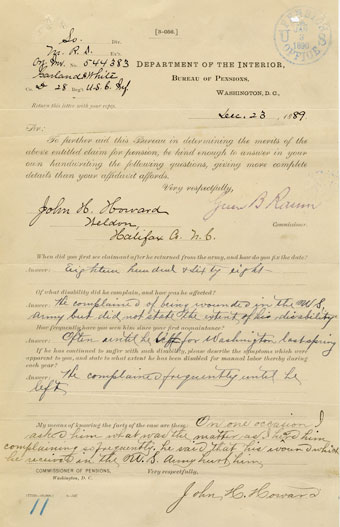 [3-068.]
So. Div.
M. R. D. Ex'r.
No. 544383
Garland H White
Co. D 28 Reg't U.S.C. Inf
Return this letter with your reply.
DEPARTMENT OF THE INTERIOR,
BUREAU OF PENSIONS,
WASHINGTON, D. C.,
Dec. 23, 1889.
U S
OFFICE
1890
Sir:
To further aid this Bureau in determining the merits of the
above entitled claim for pension, be kind enough to answer in your
own handwriting the following questions, giving more complete
details than your affidavit affords.
Very respectfully,
Green B Raum
Commissioner.
John H. Howard
Weldon,
Halifax Co. N.C.
When did you first see claimant after he returned from the army, and how do you fix the date?
Answer: Eighteen hundred & sixty eight—
Of what disability did he complain, and how was he affected?
Answer: He complained of being wounded in the U.S.
Army but did not state the extent of his disability
How frequently have you seen him since your first acquaintance?
Answer: Often until he left for Washington last spring
If he has continued to suffer with such disability, please describe the symptoms which were
apparent to you, and state to what extent he has been disabled for manual labor thereby during
each year?
Answer: He complained frequently until he
left
My means of knowing the facts of the case are these: On one occasion I
asked him what was the matter, as I heard him
complaining so frequently, he said that his wound which
he received in the U.S. Army hurt him,
COMMISSIONER OF PENSIONS,
Washington, D. C.
Very respectfully,
John H. Howard
11